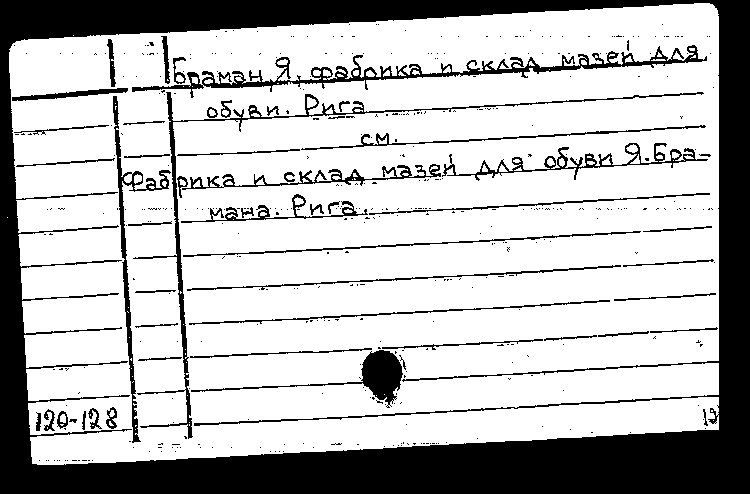 Браман, Я. фабрика и склад мазей для
обуви. Рига
см.
Фабрика и склад мазей для обуви Я. Бра-
мана. Рига.
120-128
12